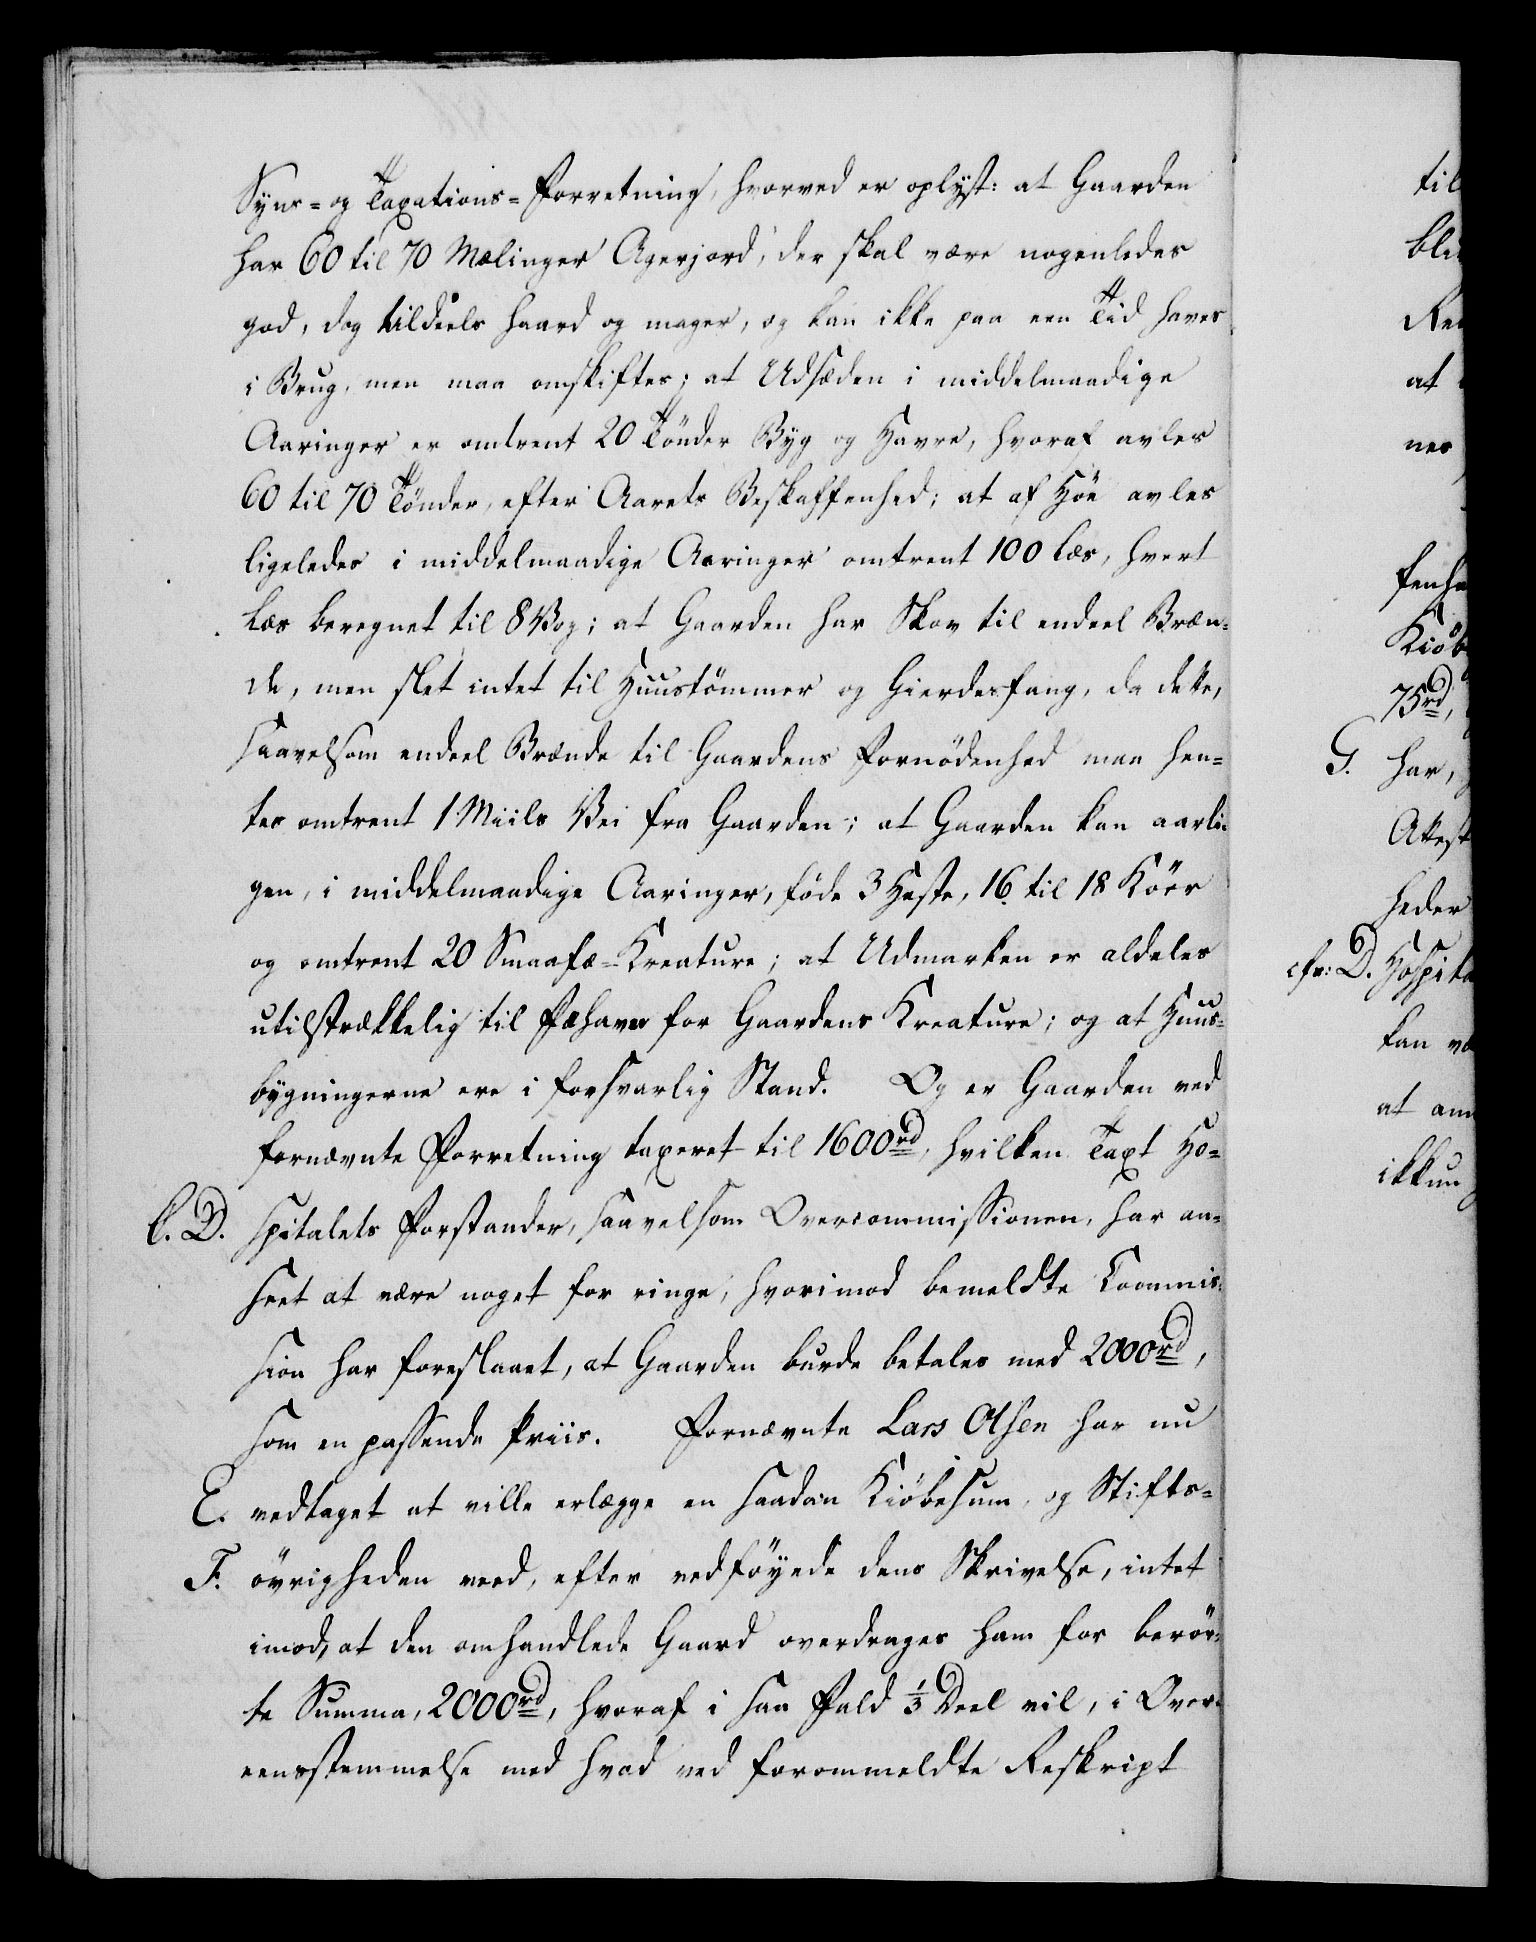 Syns- og Taxations-Forretning, hvorved er oplyst: at Gaarden
har 60 til 70 Mælinger Agerjord, der skal være nogenledes
god, dog tildeels haard og mager, og kan ikke paa een Tid haves
i Brug, men maa omskiftes; at Udsæden i middelmaadige
Aaringer er omtrent 20 Tönder Byg og Havre, hvoraf avles
60 til 70 Tönder, efter Aarets Beskaffenhed; at af Höe avles
ligeledes i middelmaadige Aaringer omtrent 100 Læs, hvert
Læs beregnet til 8 Vog; at Gaarden har Skov til endeel Bræn-
de, men slet intet til Huustömmer og Gierdesfang, da dette,
saavelsom endeel Brænde til Gaardens Fornödenhed maa hen-
tes omtrent 1 Miils Vei fra Gaarden; at Gaarden kan aarli-
gen, i middelmaadige Aaringer, föde 3 Heste, 16 til 18 Köer
og omtrent 20 Smaafæ-Kreature; at Udmarken er aldeles
utilstrækkelig til Fæhavn for Gaardens Kreature; og at Huus-
bygningerne ere i forsvarlig Stand. Og er Gaarden ved
fornævnte Forretning taxeret til 1600 rd, hvilken Taxt Ho-
C. D. spitalets Forstander, saavelsom Overcommissionen, har an-
seet at være noget for ringe, hvorimod bemeldte Commis-
sion har foreslaaet, at Gaarden burde betales med 2000 rd,
som en passende Priis. Fornævnte Lars Olsen har nu
E. vedtaget at ville erlægge en saadan Kiöbesum, og Stifts-
F. övrigheden veed, efter vedföyede dens Skrivelse, intet
imod, at den omhandlede Gaard overdrages ham for berör-
te Summa, 2000 rd, hvoraf i saa Fald 1/3 Deel vil, i Over-
eensstemmelse med hvad ved forommeldte Reskript
til
at
nes
75 rd,
G. har,
heder
cfr: D.
at